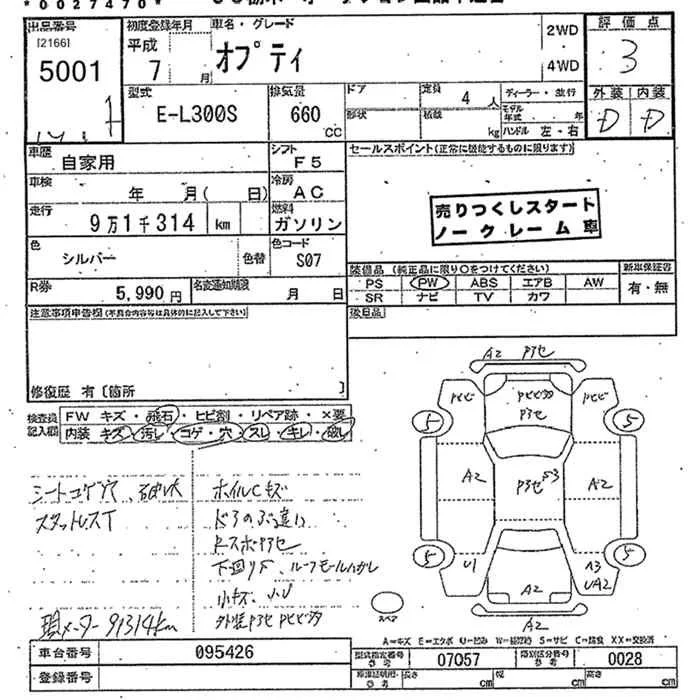 *0027470*
出品番号
[2166]
5001
初度登録年月
平成
7 月
車名・グレード
オプティ
2WD
4WD
評価点
3
外装 内装
D D
型式
E-L300S
排気量
660
CC
ドア
形状
定員
4 人
積載
kg
ディーラー・並行
モデル年式 年
ハンドル 左・右
車歴
自家用
シフト
F5
車検
年 月( 日)
冷房
AC
走行
9万1千314 km
燃料
ガソリン
色
シルバー
色替
色コード
S07
R券
5,990 円
名変通知期限
月 日
セールスポイント(正常に機能するものに限ります)
売りつくしスタート
ノークレーム車
装備品 (純正品に限り○をつけてください)
新車保証書
PS PW ABS エアB AW
SR ナビ TV カワ
有・無
後日品
注意事項申告欄
修復歴 有〔箇所 〕
検査員記入欄
FW キズ・飛石・ヒビ割・リペア跡・×要
内装 キズ・汚レ・コゲ・穴・スレ・キレ・破レ
シートコゲ穴、破レ大
スタットレスT
現メーター 91314km
ホイルCキズ
ドアのぶ違い
下回りS
小キズ
A2
5 5
A2 A2
5 5
U1
A3
UA2
A2
A2
スペア
A=キズ E=エクボ U=凹み W=補修跡 S=サビ C=腐食 XX=交換済
車台番号
095426
登録番号
型式指定番号
参考
07057
類別区分番号
参考
0028
長さ cm
幅 cm
高さ cm